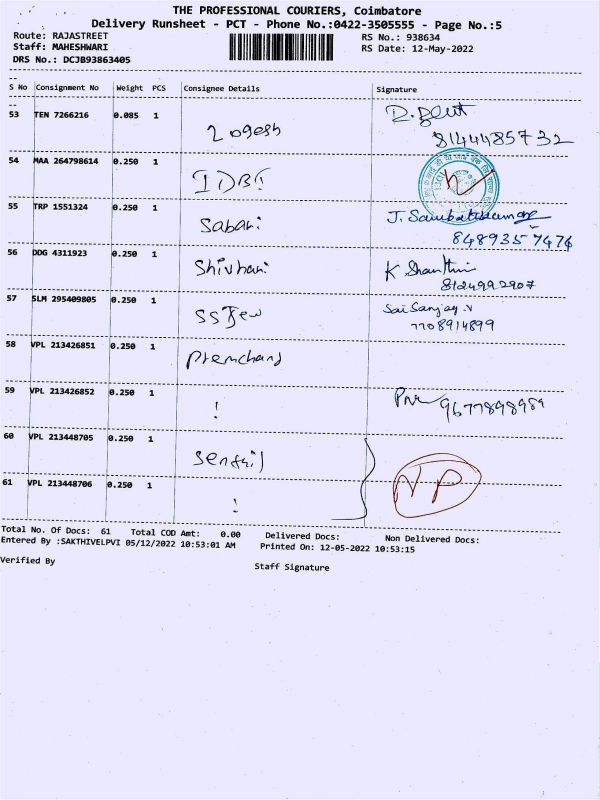 THE PROFESSIONAL COURIERS, Coimbatore
Delivery Runsheet - PCT - Phone No.:0422-3505555 - Page No.:5
Route: RAJASTREET RS No.: 938634
Staff: MAHESHWARI RS Date: 12-May-2022
DRS No.: DCJB93863405
S No Consignment No Weight PCS Consignee Details Signature
53 TEN 7266216 0.085 1 Logesh
8144485732
54 MAA 264798614 0.250 1 IDBI
55 TRP 1551324 0.250 1 Sabari J. Sambathkumar
8489357476
56 DDG 4311923 0.250 1 Shivhani K Shanthi
8124992907
57 SLM 295409805 0.250 1 SS Jew Sai Sanjay. V
7708914899
58 VPL 213426851 0.250 1 Premchand
59 VPL 213426852 0.250 1 ! 9677898989
60 VPL 213448705 0.250 1 Senthil
NP
61 VPL 213448706 0.250 1 !
Total No. Of Docs: 61 Total COD Amt: 0.00 Delivered Docs: Non Delivered Docs:
Entered By :SAKTHIVELPVI 05/12/2022 10:53:01 AM Printed On: 12-05-2022 10:53:15
Verified By Staff Signature